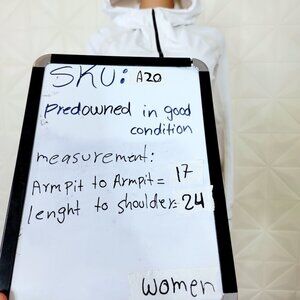 SKU: A20
Predowned in good
condition
measurement:
Armpit to Armpit = 17
lenght to shoulder= 24
women